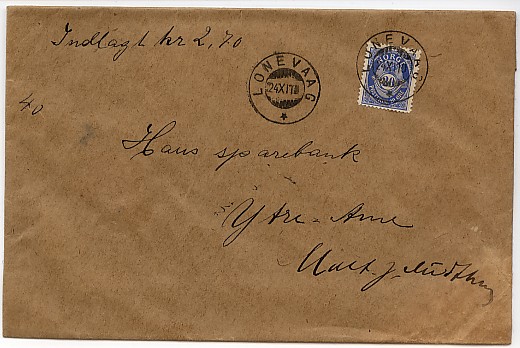 Indlagt kr 2,70
LONEVAAG
24 XI 17
LONEVAAG
NORGE
20
40
Haus sparebank
Ytre-Arne